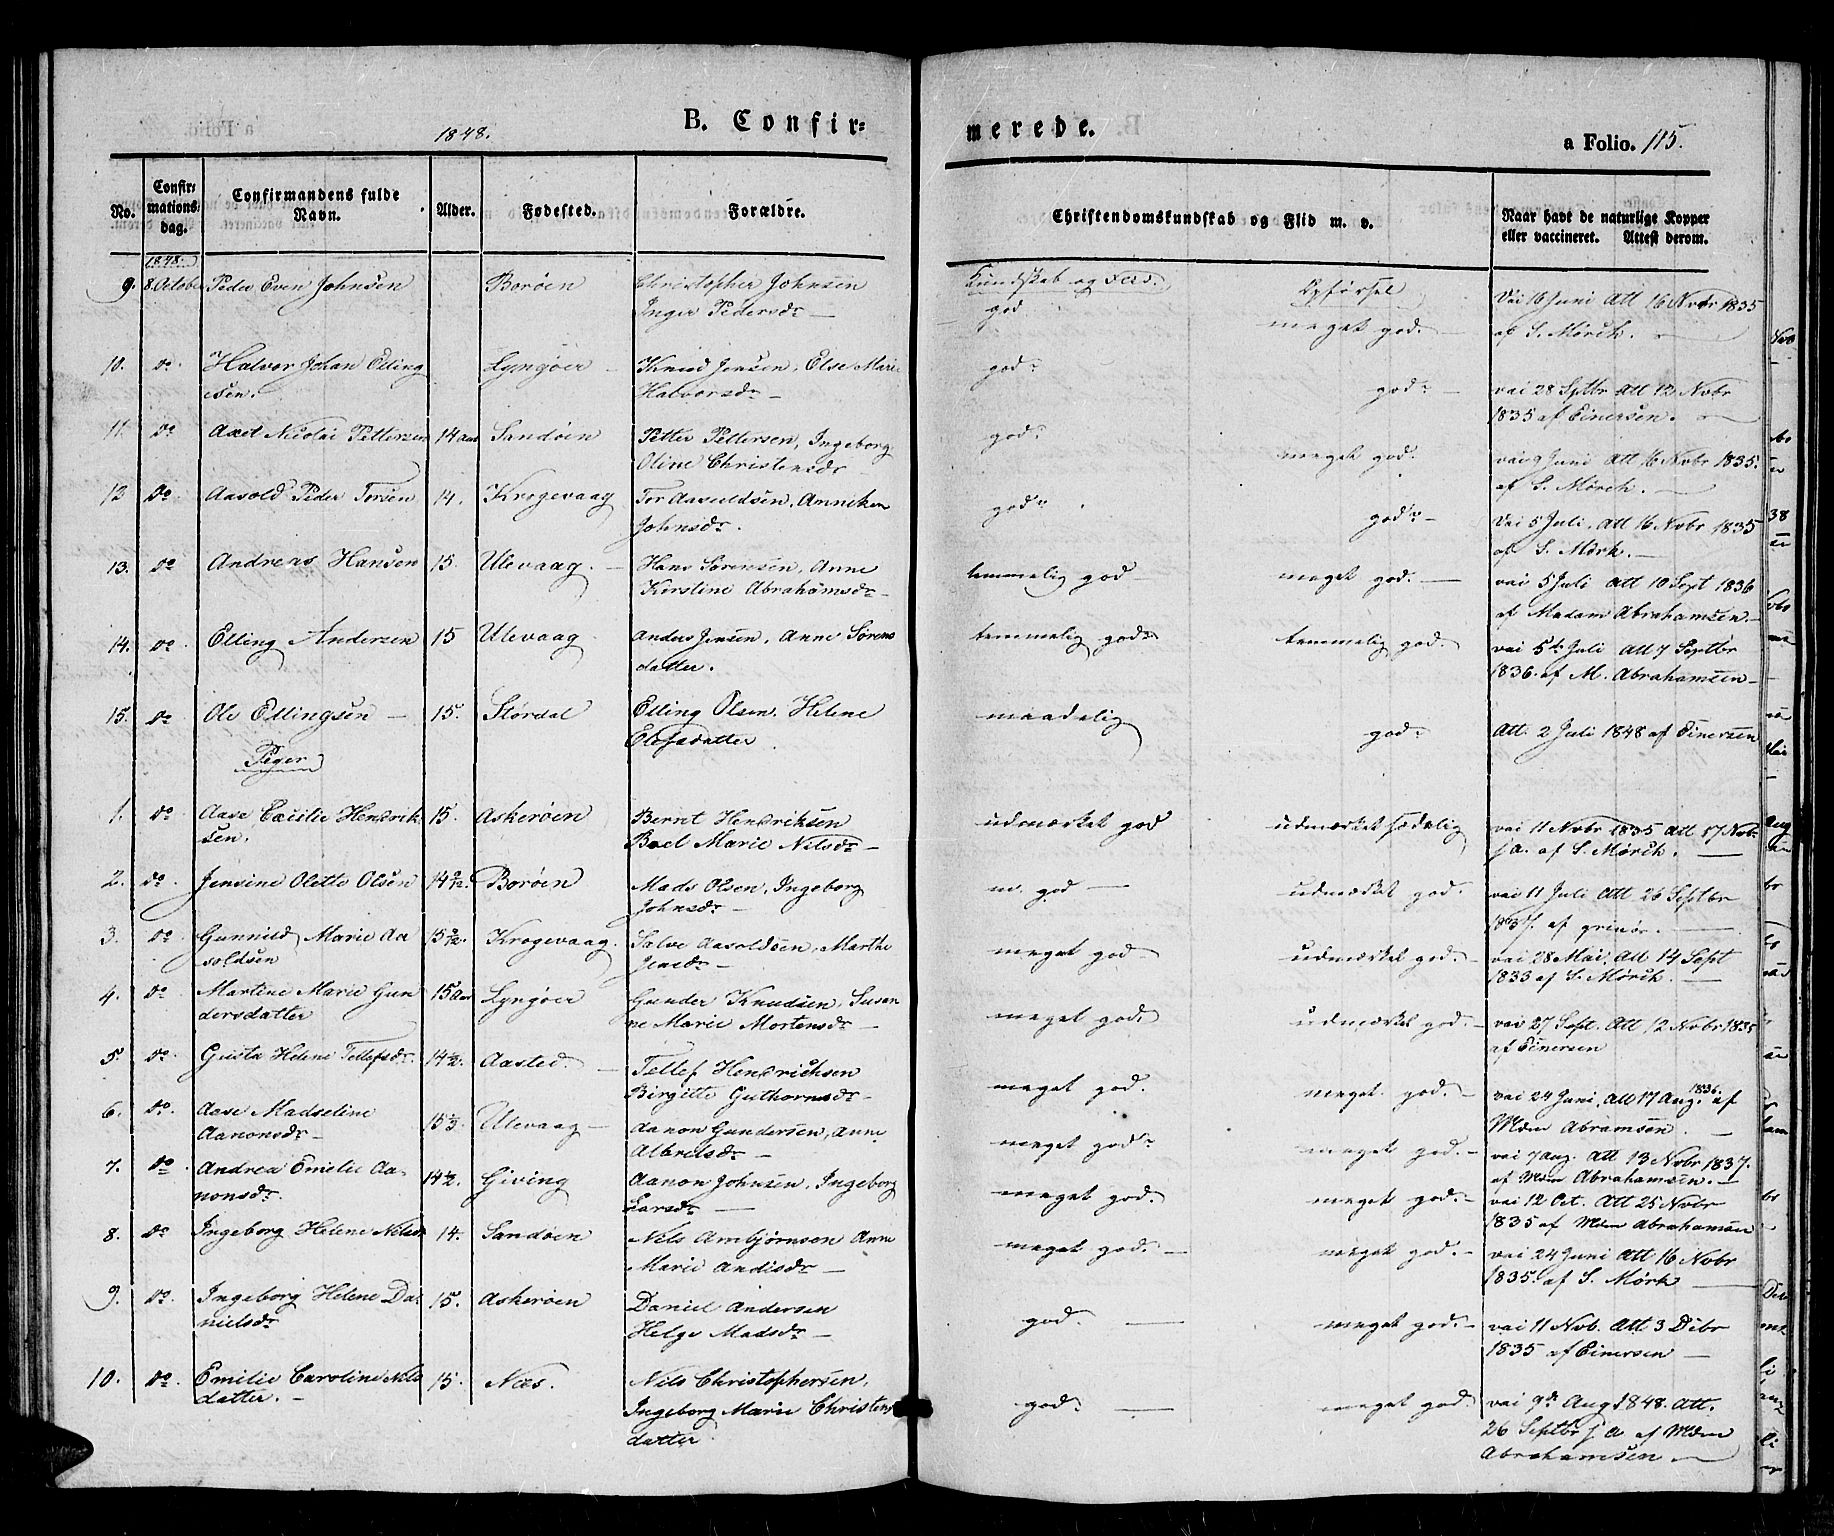 1848.
B. Confir=
merede.
a Folio. 115.
No.
Confir=
mations=
dag.
Confirmandens fulde
Navn.
Alder.
Fødested.
Forældre.
Christendomskundskab og Flid m. v.
Naar havt de naturlige Kopper
eller vaccineret. Attest derom.
1848.
Kundskab og
Opførsel
9. 8. Octobr Peder Even Johnsen Borøen Christopher Johnsen god meget god. Vai 16 Juni Att 16 Novbr 1835
Inger Pedersdr — af S. Mørch.
10. do Halvor Johan Elling Lyngøer — Knud Jensen, Else Marie god. god. vai 28 Sptbr Att 12 Novbr
sen. Halvorsdr — 1835 af Einersen.
11. do Axel Nicolai Pettersen 14 aar Sandøen Petter Pettersen, Ingeborg god. meget god. vai 9 Juni Att 16 Novbr 1835.
Oline Christensdr af S. Mørch. —
12 do Aasold Peder Torsen 14. Krogevaag Tor Aasuldsen, Anniken god. god — Vai 5 Juli, Att 16 Novbr 1835
Johnsdr. af S. Mørk. —
13. do Andreas Hansen 15. Ulevaag. — Hans Sørensen, Anne temmelig god — meget god. — vai 5 Juli Att 10 Sept 1836
Kirstine Abrahamsdr — af Madam Abrahamsen. —
14. do Elling Andersen 15 Ulevaag. Anders Jensen, Anne Sørens temmelig god. temmelig god. vai 5te Juli Att 7 Septbr
datter. 1836. af M. Abrahamsen —
15. do Ole Ellingsen — 15. Størdal Elling Olsen, Helene maadelig god. Att. 2 Juli 1848 af Einersen
Elefsdatter
Piger
1. do Aase Cæcilie Henrik 15. Askerøen Bernt Henriksen udmærket god udmærket sædelig vai 11 Novbr 1835 Att 17 Novbr
sen. Boel Marie Nilsdr — s. A. af S. Mørch. —
2. do. Jensine Olette Olsen 14 Borøen Mads Olsen, Ingeborg m. god — udmærket god. vai 11 Juli Att 26 Septbr
Johnsdr — 1837. af
3. do Gunnild Marie Aa 15 Krogevaag. Salve Aasoldsen, Marthe meget god — udmærket god. — vai 28 Mai, Att 14 Sept
soldsen Jensdr — 1833 af S. Mørch. —
4. do Martine Marie Gun 15 Aar Lyngøer Gunder Knudsen, Susan meget god. udmærket god. — vai 27 Sept. Att 12 Novbr 1835
dersdatter ne Marie Mortensdr — af Einersen
5. do. Gusta Helene Tellefsdr. 14½. Aasted. — Tellef Hendrichsen meget god. meget god. — vai 24 Juni, Att 17 Aug. 1836. af
Birgitte Guthormsdr — Mdm Abramsen. —
6. do. Aase Madseline 15 Ulevaag — Aanon Gundersen, Anne meget god. meget god. — vai 7 Aug. Att 13 Novbr 1837.
Aanonsdr — Albretsdr — af Mdm Abrahamsen. —
7. do Andrea Emilie Aa- 14½. Giving Aanon Johnsen, Ingeborg meget god. meget god. — vai 12 Oct. Att 25 Novbr
nonsdr. Larsdr — 1835 af Mdm Abrahamsen
8. do Ingeborg Helene Nilsdr 14. Sandøen Nils Ambjørnsen Anne meget god. — meget god. — vai 24 Juni Att 16 Novbr
Marie Andisdr — 1835. af S. Mørk —
9. do. Ingeborg Helene Da- 15. Askerøen Daniel Andersen god. — meget god. — vai 11 Nob. Att 3 Dcbr
nielsdr Helge Madsdr — 1835 af Einersen —
10. do. Emilie Caroline Nils 15. Næs. Nils Christophersen, god. — meget god. vai 9de Aug 1848. Att.
datter. — Ingeborg Marie Christens 26 Septbr s. A af Mdm
datter. Abrahamsen —